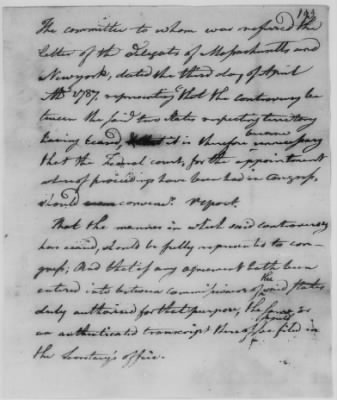 144
The committee to whom was referred the
letter of the Delegates of Massachusetts and
New york, dated the third day of April
AD. 1787. representing that the controversy be
tween the said two states respecting territory
having ceased, it is therefore
became
unnecessary
that the Federal court, for the appointment
whereof proceedings have been had in congress,
should convene. report.
That the manner in which said controversy
has ceased, should be fully represented to con-
gress; And that if any agreement hath been
entered into between commissioners of
the
said states
duly authorised for that purpose, the same or
an authenticated transcript thereof
should
be filed in
the Secretary's office.